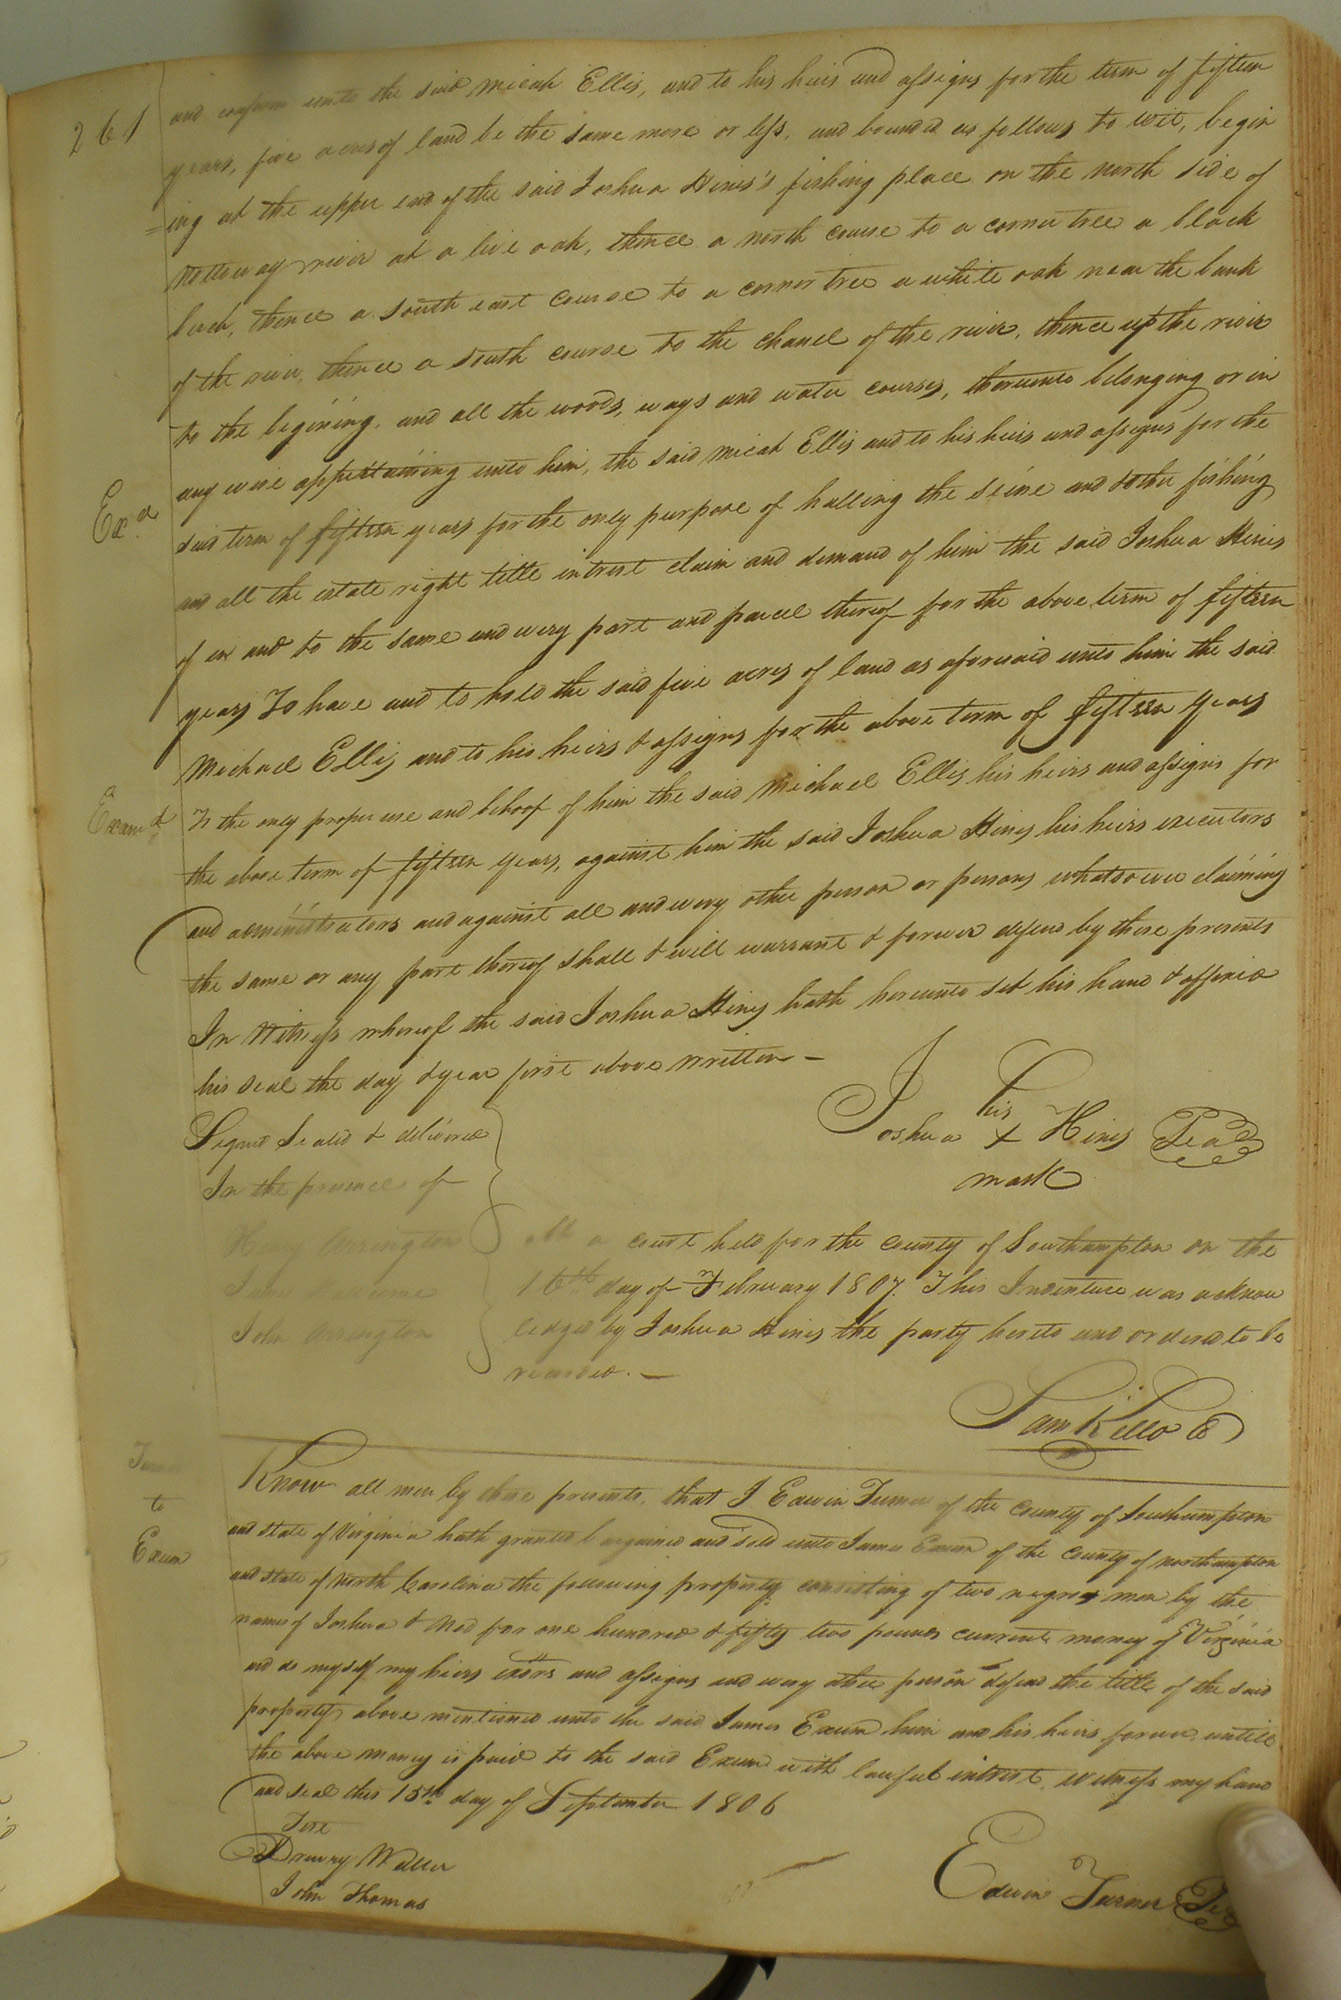 261
and confirm unto the said Micah Ellis, and to his heirs and assigns for the term of fifteen
years, five acres of land be the same more or less, and bounded as follows to wit, begin
=ing at the upper end of the said Joshua Hines's fishing place on the north side of
Nottoway river at a live oak, thence a north course to a corner tree a black
birch, thence a south east course to a corner tree a white oak near the bank
of the river, thence a south course to the chanel of the river, thence up the river
to the begining, and all the woods, ways and water courses, thereunto belonging or in
any wise appertaining unto him, the said Micah Ellis and to his heirs and assigns for the
Exd
said term of fifteen years for the only purpose of halling the seine and other fishing
and all the estate right title intrest claim and demand of him the said Joshua Hines
of in and to the same and every part and parcel thereof for the above term of fifteen
years To have and to hold the said five acres of land as aforesaid unto him the said
Michael Ellis and to his heirs & assigns for the above term of fifteen years
Examd
To the only proper use and behoof of him the said Michael Ellis his heirs and assigns for
the above term of fifteen years, against him the said Joshua Hines his heirs executors
and administrators and against all and every other person or persons whatsoever claiming
the same or any part thereof shall & will warrant & forever defend by these presents
In Witness whereof the said Joshua Hines hath hereunto set his hand & affixed
his seal the day & year first above written —
Signed Sealed & delivered
In the presence of
Henry Arrington
John Arrington
his
Joshua + Hines Seal
mark
a court held for the county of Southampton on the
16th day of February 1807. This Indenture was acknow
ledged by Joshua Hines the party hereto and ordered to be
recorded. —
Sam Kello C
to
Exum
Know all men by these presents, that I Edwin Turner of the county of Southampton
and state of Virginia hath granted bargained and sold unto James Exum of the county of northampton
and state of North Carolina the following property consisting of two negroe men by the
names of Joshua & Ned for one hundred & fifty two pounds current money of Virginia
and do myself my heirs exors and assigns and every other person defend the title of the said
property above mentioned unto the said James Exum him and his heirs forever, untill
the above money is paid to the said Exum with lawful intrest, witness my hand
and seal this 15th day of September 1806
Test
Drewry Weller
John Thomas
Edwin Turner Seal